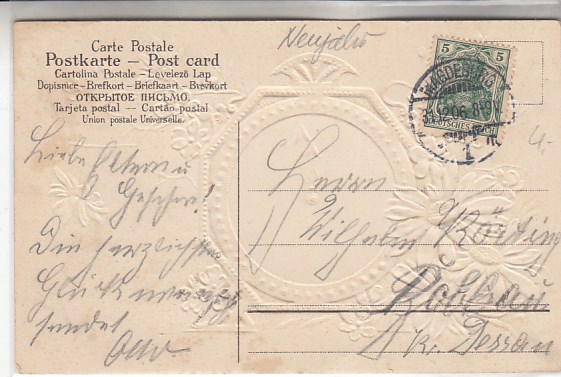 Neujahr
Carte Postale
Postkarte — Post card
Cartolina Postale – Levelező Lap
Dopisnice – Brefkort – Briefkaart – Brevkort
ОТКРЫТОЕ ПИСЬМО.
Tarjeta postal — Cartão postal
Union postale Universelle.
5 5
MAGDEBURG
DEUTSCHES REICH
1
4.-
Liebe Eltern u
Geschw.!
Die herzlichsten
Glückwünsche
sendet
Otto
Herrn
Wilhelm
Roßlau
Kr. Dessau